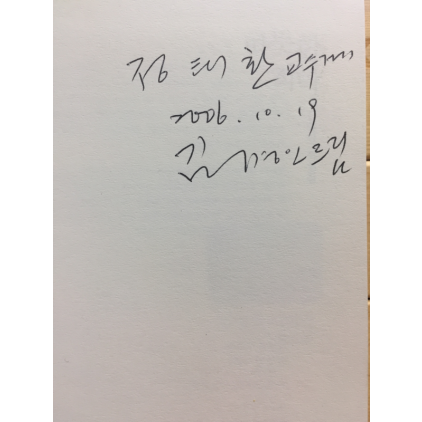 정 태 환 교수께
2006. 10. 19
김 드림